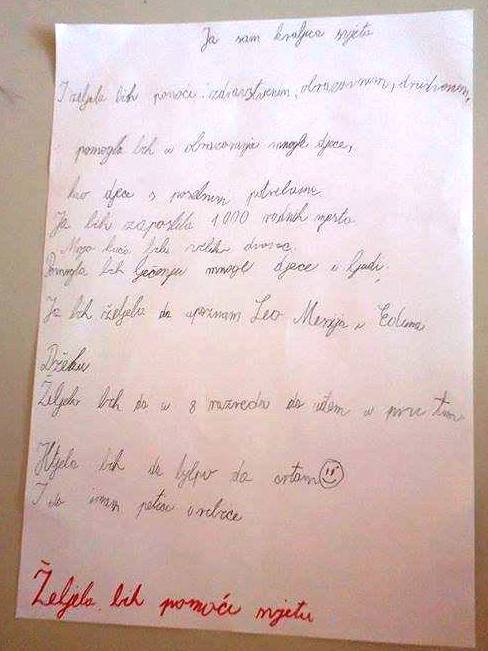 Ja sam kraljica svjeta
I željela bih pomoći zdravstvenim, obrazovnim, društvenim,
pomogla bih u obrazovanju mnoge djece,
kao djece s posebnim potrebama
Ja bih zaposlila 1000 radnih mjesta
Moja kuća bila velik dvorac.
Pomogla bih liječenju mnoge djece i ljudi.
Ja bih željela da upoznam Leo Messija i
Džeku
Željela bih da u 8 razredu da uđem u prvi tim
Htjela bih da ljepo da crtam
I da imam petice
Željela bih pomoći svjetu